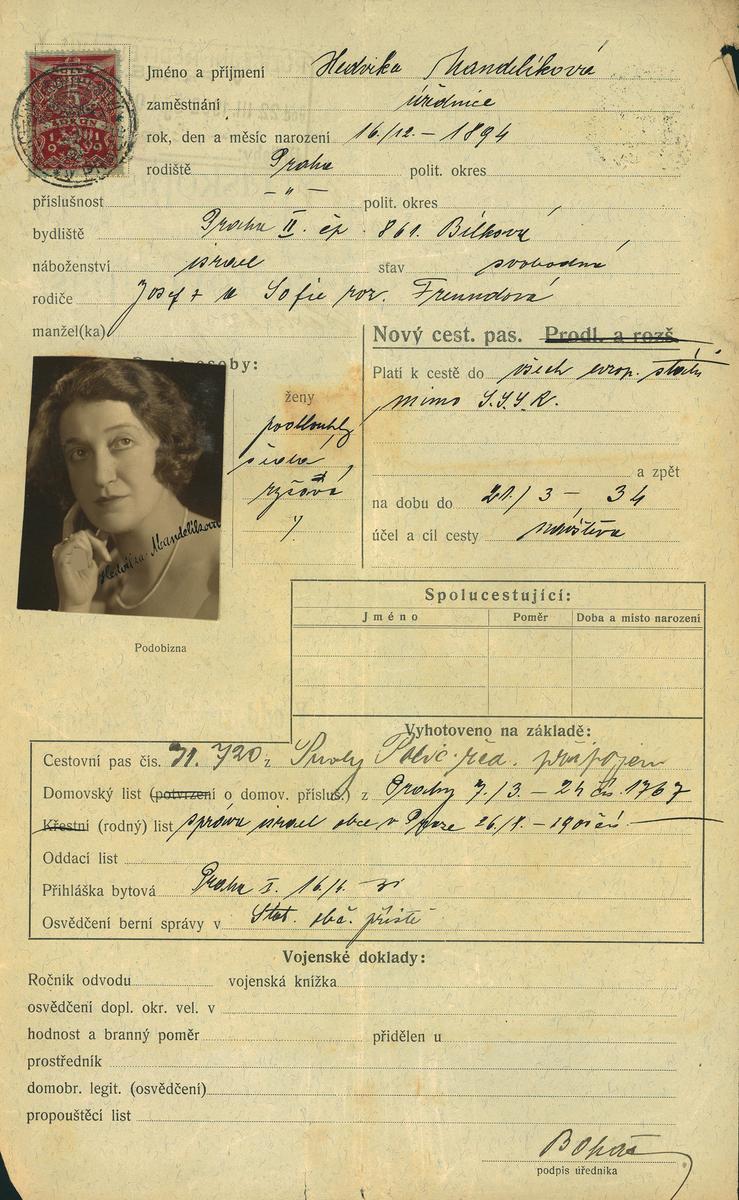 Jméno a příjmení Hedvika Mandelíková
zaměstnání úřednice
rok, den a měsíc narození 16/12. – 1894
rodiště Praha polit. okres
příslušnost – „ – polit. okres
bydliště Praha II. čp. 861. Bílková
náboženství israel stav svobodná
rodiče Josef + a Sofie roz. Freundová
manžel(ka)
Nový cest. pas. Prodl. a rozš.
osoby:
Platí k cestě do všech evrop. států
mimo S.S.S.R.
ženy
podlouhlý
šedé
ryšavá
a zpět
na dobu do 21/3 – 34
účel a cíl cesty návštěva
Hedvika Mandelíková
Podobizna
Spolucestující:
Jméno Poměr Doba a místo narození
Vyhotoveno na základě:
Cestovní pas čís. z Polic. řed. připojen
Domovský list (potvrzení o domov. přísluš.) z Prahy 7./3. – 24 čís. 1767
Křestní (rodný) list správa israel obce v Praze 26/8. – 1901
Oddací list
Přihláška bytová Praha I. 16/
Osvědčení berní správy v Stát. obč. příště
Vojenské doklady:
Ročník odvodu vojenská knížka
osvědčení dopl. okr. vel. v
hodnost a branný poměr přidělen u
prostředník
domobr. legit. (osvědčení)
propouštěcí list
podpis úředníka